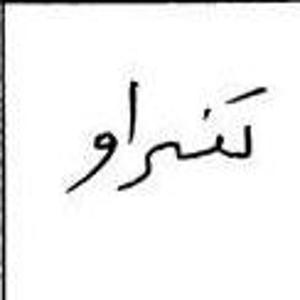 کنراو